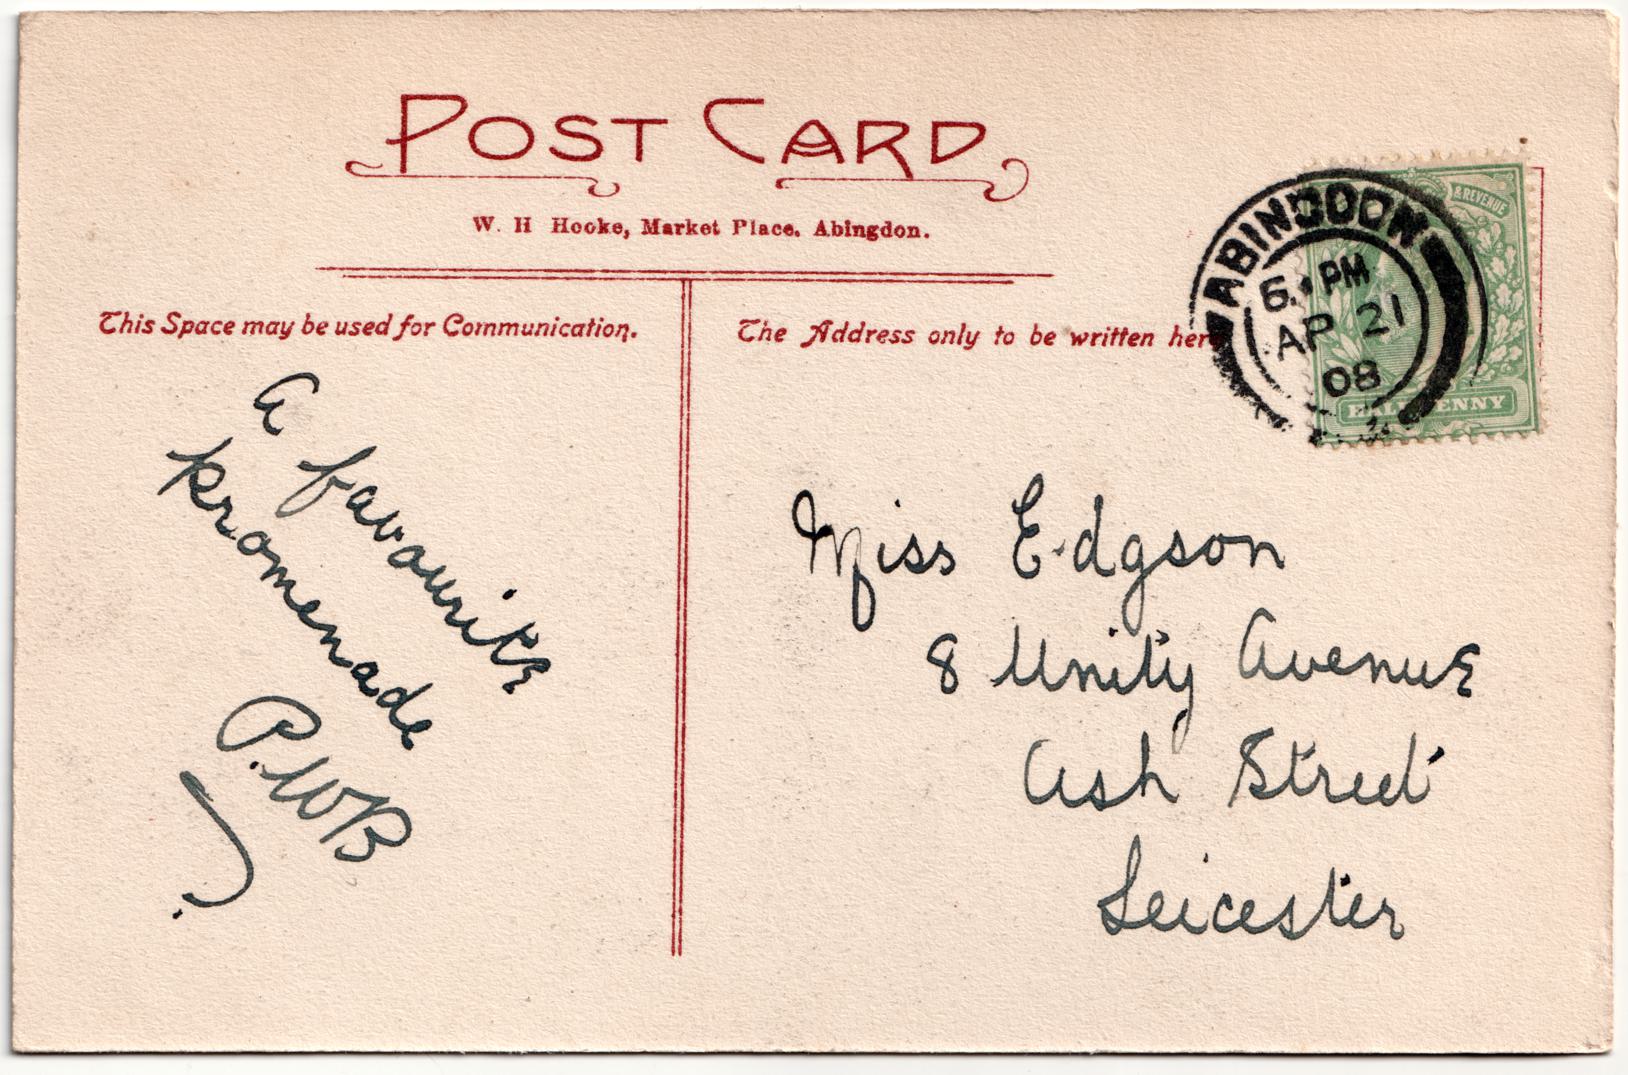 POST CARD
W. H Hooke, Market Place. Abingdon.
This Space may be used for Communication.
The Address only to be written here
ABINGDON
6. PM
AP 21
08
& REVENUE
HALFPENNY
A favourite
promenade
P.WB
Miss Edgson
8 Unity Avenue
Ash Street
Leicester